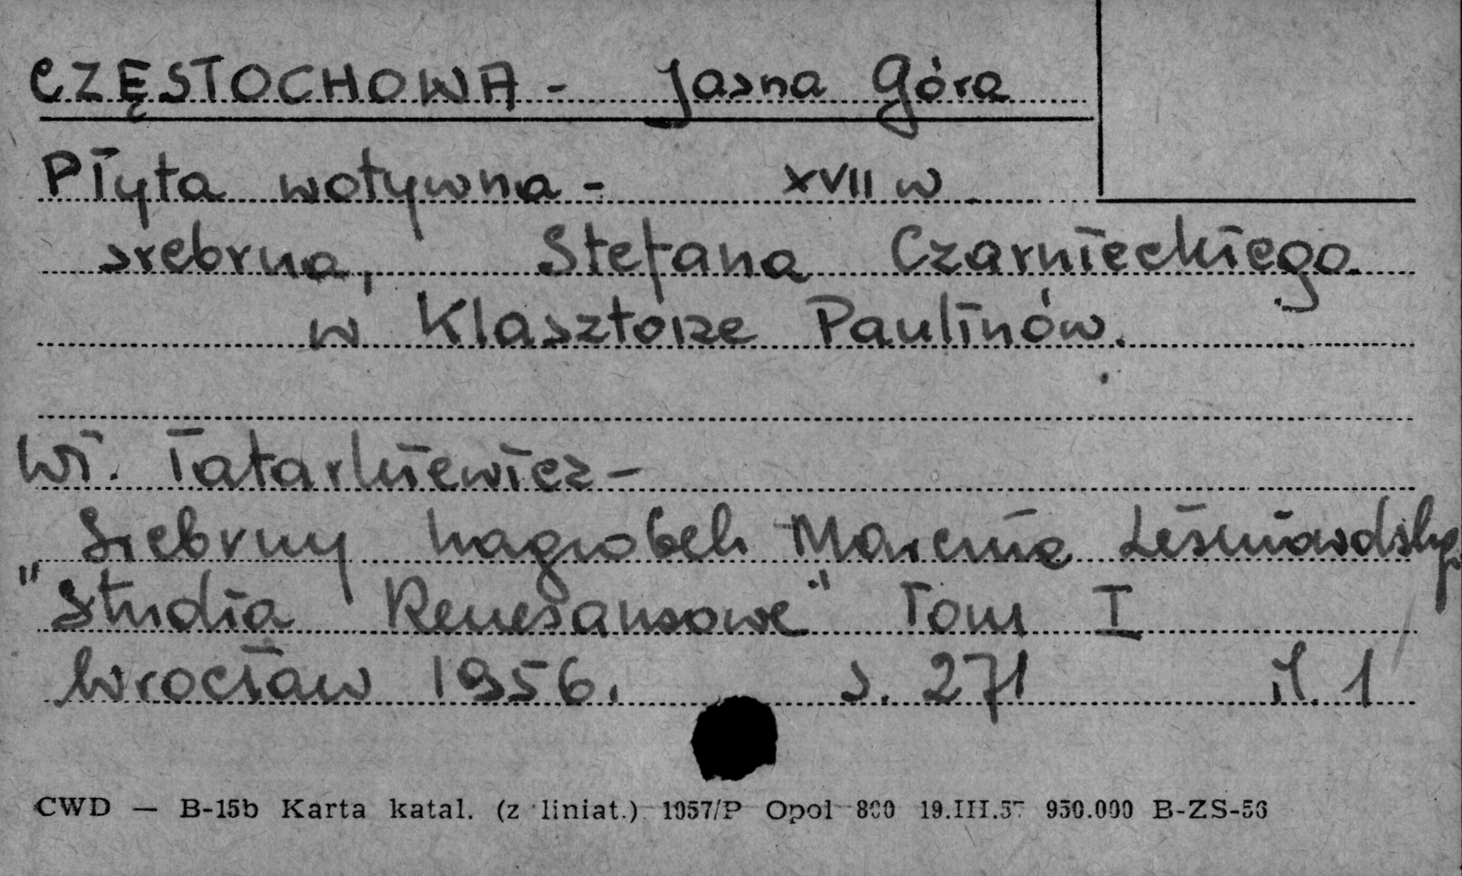 CZĘSTOCHOWA - Jasna Góra
Płyta wotywna - XVII w
srebrna, Stefana Czarnieckiego
w Klasztorze Paulinów.
Wł. Tatarkiewicz -
Srebrny nagrobek Marcina
"Studia Renesansowe" Tom I
Wrocław 1956. s. 271 il. 1
CWD — B-15b Karta katal. (z liniat.) 1957/P Opol 800 19.III.57 950.000 B-ZS-56